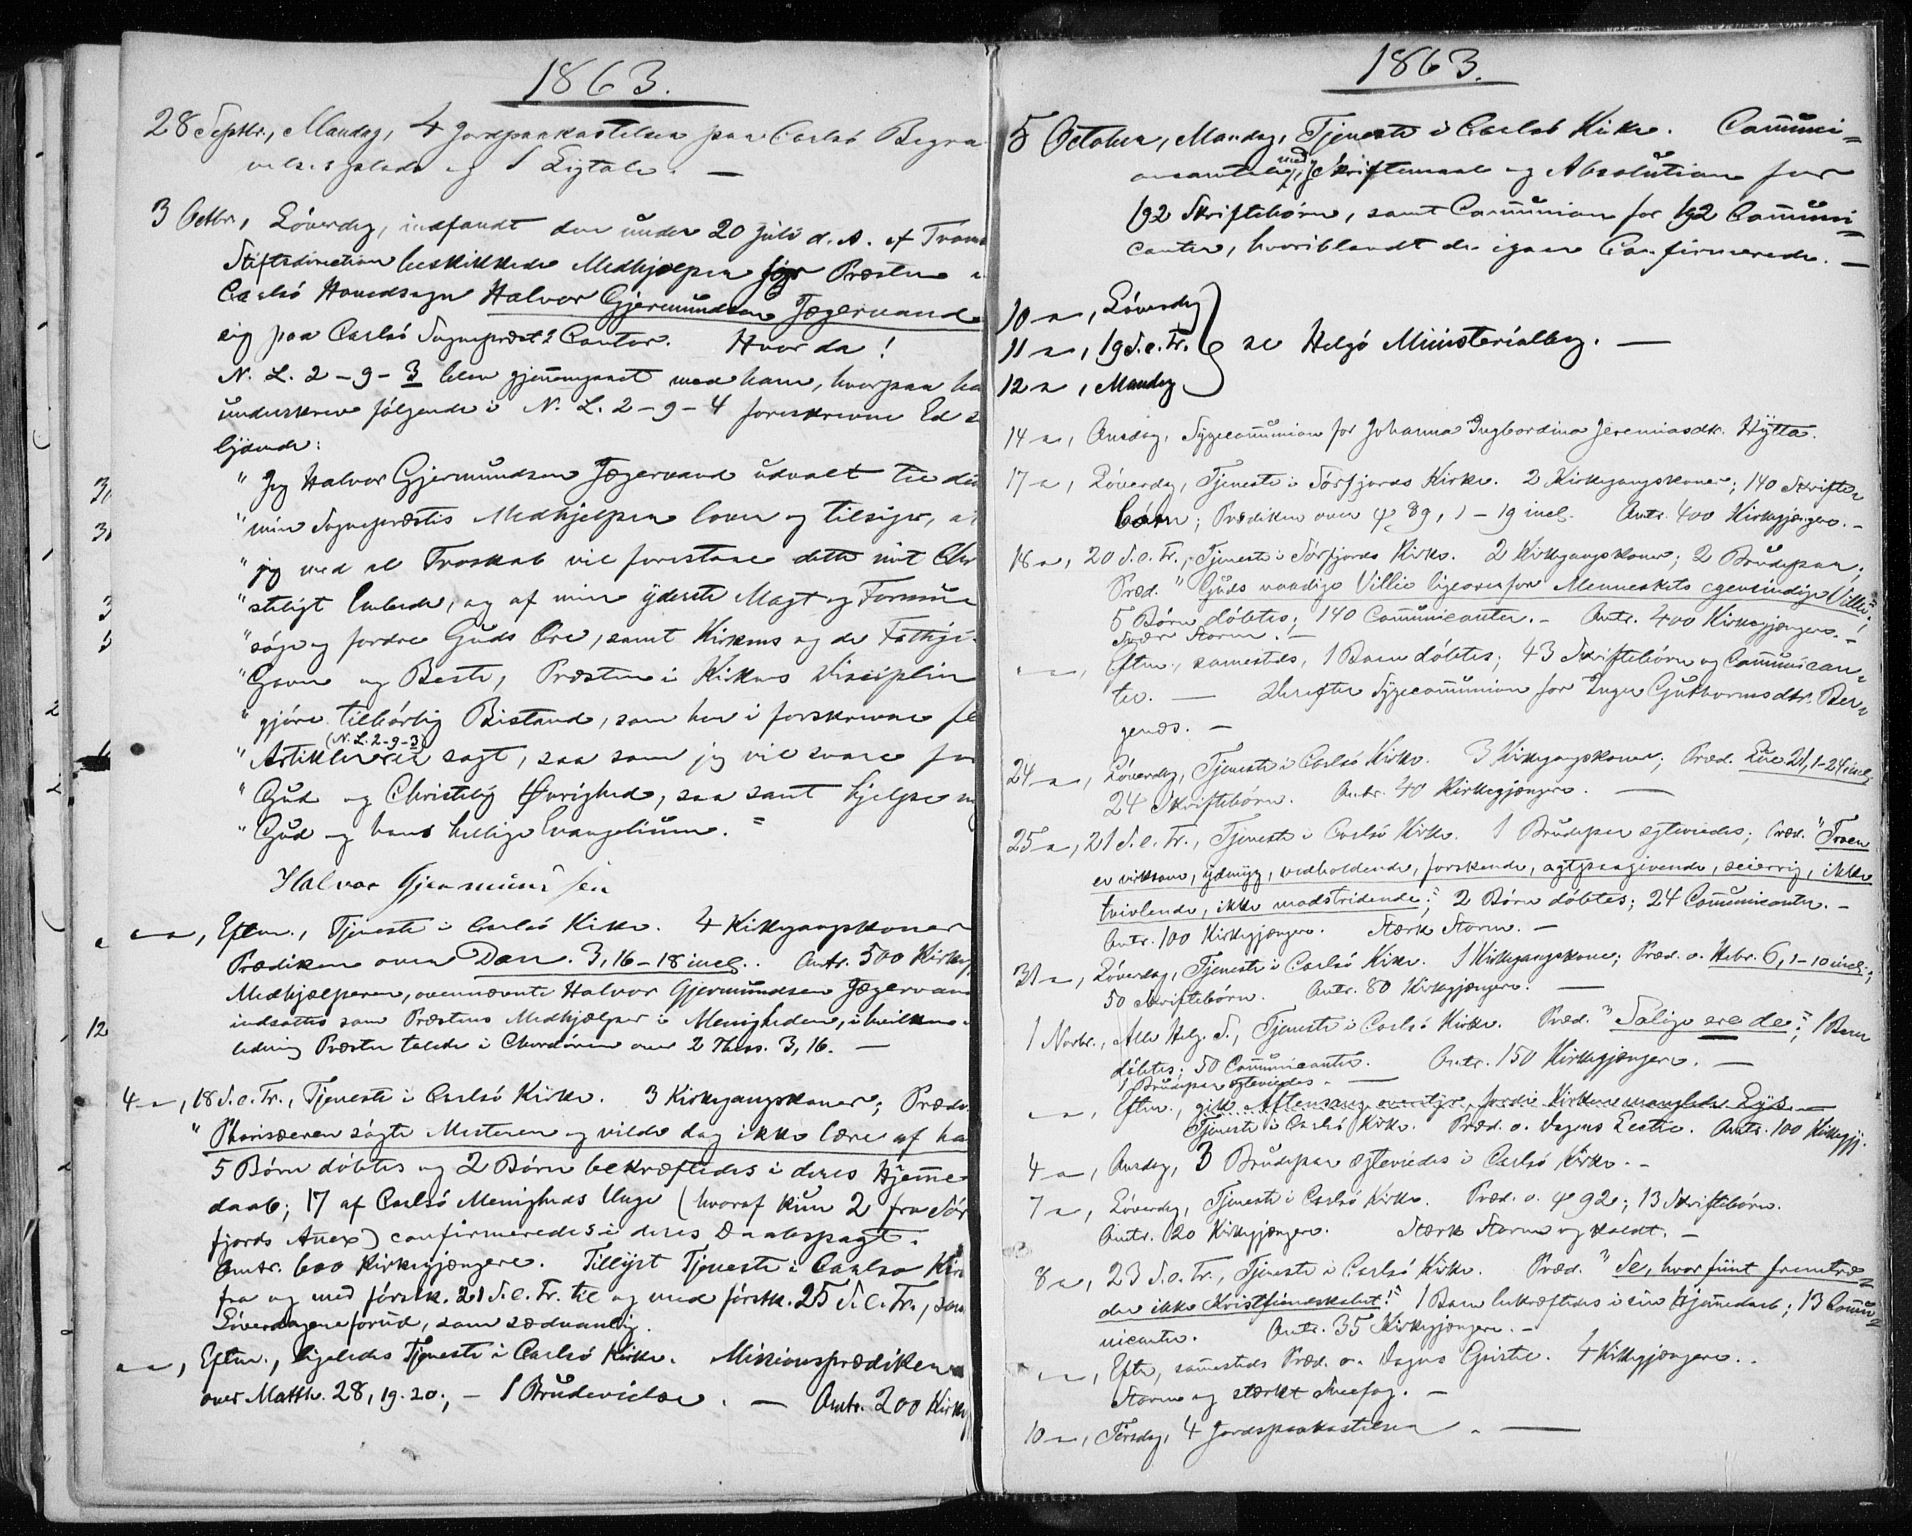 1863.
28 Septbr., Mandag, 4 Jordpaakastelser paa Carlsö Begra
velsesplads og 1 Ligtale. —
3 Octbr., Löverdag, indfandt den under 20 Juli d. A. af Troms
Stiftsdirection beskikkede Medhjælper for Præsten i
Carlsö Hovedsogn Halvor Gjermundsen Jægervand
sig paa Carlsö Sognepræsts Contor. Hvor da!
N. L. 2-9-3 blev gjennemgaaet med ham, hvorpaa ha
underskrev følgende i N. L. 2-9-4 foreskrevne Ed s
lydende:
"Jeg Halvor Gjermundsen Jægervand udvalt til de
"min Sognepræstis Medhjelper lover og tilsiger, a
"jeg med al Troskab vil forestaae dette mit Chr
"steligt Embede, og af min yderste Magt og Formue
"søge og fordre Guds Ære, samt Kirkens og de Fattige
"Gavn og Beste, Præsten i Kirkens Disciplin
"gjöre tilbörlig Bistand, som her i forskrevne
(N. L. 2-9-3)
"Artikler er sagt, saa som jeg vil svare for
"Gud og Christelig Øvrighed, saa sant hjelpe m
"Gud og hans hellige Evangelium."
Halvor Gjermundsen
" — , Eftm., Tjeneste i Carlsö Kirke. 4 Kirkegangskoner
Prædiken over Dan. 3, 16-18 incl. Omtr. 500 Kirkeg
Medhjælperen, ovennævnte Halvor Gjermundsen Jægervand
indsattes som Præstens Medhjælper i Menigheden, i hvilken
ledning Præsten talede i Chordören over 2 Thess. 3, 16. —
4 — , 18 S. e. Tr., Tjeneste i Carlsö Kirke. 3 Kirkegangskoner; Præd.
"Pharisæeren søgte Mesteren og vilde dog ikke lære af ha
5 Börn döbtes og 2 Börn bekræftedes i deres Hjemme
daab; 17 af Carlsö Menigheds Unge (hvoraf kun 2 fra Sör
fjords Anex) confirmeredes i deres Daabspagt.
Omtr. 600 Kirkegjængere. Tillyst Tjeneste i Carlsö Kir
fra og med förstk. 21 S. e. Tr. til og med förstk. 25 S. e. Tr., sam
Löverdagene forud, som sædvanlig.
" — , Eftm., ligeledes Tjeneste i Carlsö Kirke. Missionsprædiken
over Matth. 28, 19. 20; — 1 Brudevielse. — Omtr. 200 Kirkeg
1863.
5 October, Mandag, Tjeneste i Carlsö Kirke. Communi=
med Skriftemaal og Absolution for
192 Skriftebörn, samt Communion for 192 Communi=
canter, hvoriblandt de igaar Confirmerede. —
10 — , Löverdag
11 — , 19 S. e. Tr. se Helgö Ministerialbog. —
12 — , Mandag
14 — , Onsdag, Sygecommunion for Johanna Ingbordina Jeremiasdtr. Hytta.
17 — , Löverdag, Tjeneste i Sörfjords Kirke. 2 Kirkegangskoner; 140 Skrifte=
börn; Prædiken over ψ 89, 1-19 incl. Omtr. 400 Kirkegjængere. —
18 — , 20 S. e. Tr., Tjeneste i Sörfjords Kirke. 2 Kirkegangskoner; 2 Brudepar;
Præd. "Guds naadige Villie ligeoverfor Menneskets egensindige Villie";
5 Börn döbtes; 140 Communicanter. — Omtr. 400 Kirkegjængere. —
Svær Storm! —
" — , Eftm., samesteds, 1 Barn döbtes; 43 Skriftebörn og Communican=
ter. — Derefter Sygecommunion for Inger Guthormsdtr. Ber=
genæs. —
24 — , Löverdag, Tjeneste i Carlsö Kirke. 3 Kirkegangskoner; Præd. Luc 21, 1-24 incl.
24 Skriftebörn. Omtr. 40 Kirkegjængere. —
25 — , 21 S. e. Tr., Tjeneste i Carlsö Kirke. 1 Brudepar ægteviedes; Præd. "Troen
er virksom, ydmyg, vedholdende, forskende, agtpaagivende, seierrig, ikke
tvivlende, ikke modstridende"; 2 Börn döbtes; 24 Communicanter. —
Omtr. 100 Kirkegjængere. Stærk Storm. —
31 — , Löverdag, Tjeneste i Carlsö Kirke. 1 Kirkegangskone; Præd. o. Hebr. 6, 1-10 incl.;
50 Skriftebörn. Omtr. 80 Kirkegjængere. —
1 Novbr., Alle Helg. S., Tjeneste i Carlsö Kirke. Præd. "Salige ere de"; 1 Barn
döbtes; 50 Communicanter. Omtr. 150 Kirkegjængere. —
1 Brudepar ægteviedes. —
" — , Eftm., gik Aftensang overstyr, fordi Kirken manglede Lys —
Tjeneste i Carlsö Kirke. Præd. o. Dagens Lectie. Omtr. 100 Kirkegj.
4 — , Onsdag, 3 Brudepar ægteviedes i Carlsö Kirke. —
7 — , Löverdag, Tjeneste i Carlsö Kirke. Præd. o. ψ 92; 13 Skriftebörn.
Omtr. 20 Kirkegjængere. Stærk Storm og Koldt. —
8 — , 23 S. e. Tr., Tjeneste i Carlsö Kirke. Præd. "Se, hvor fiint fremtræ=
der ikke Kristfiendskabet!" 1 Barn bekræftedes i sin Hjemmedaab; 13 Commu=
nicanter. Omtr. 35 Kirkegjængere. —
" — , Eftm., samesteds Præd. o. Dagens Epistel. 4 Kirkegjængere. .
Storm og stærkt Sneefog. —
10 — , Tirsdag, 4 Jordspaakastelser. —